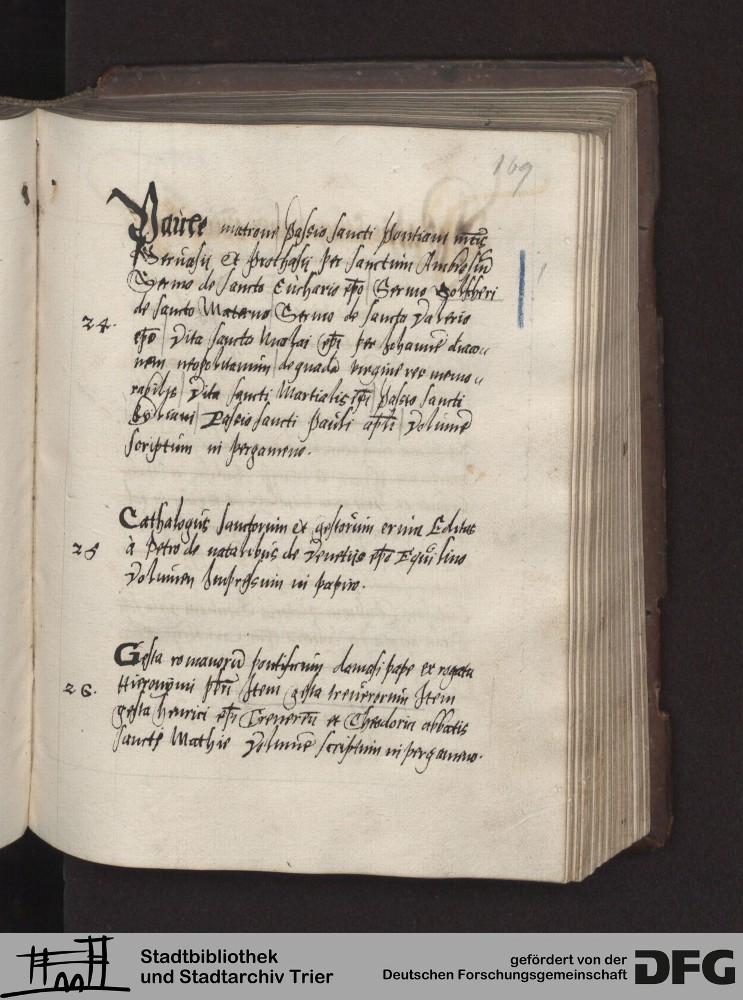 169
matrone | Passio sancti Pontiani
Geruasij et Prothasij per sanctum Ambrosiū
Sermo de sancto Euchario epo | Sermo
24. de sancto Materno | Sermo de sancto Valerio
epo | Vita sancti Nicolai epi per Johannē diaco=
nem neopolitanum | de quadā virgine rex memo=
rabilis | Vita sancti Martialis epi | Passio sancti
Passio sancti Pauli apli | Volumē
scriptum in pergameno.
Cathalogus sanctorum et gestorum eorum Editus
25 à Petro de natalibus de Venetijs epo Equilino
Volumen Impressum in papiro.
Gesta romanorū pontificum damasi pape ex rogatu
26. Hieronymi pbri Item gesta treuerorum Item
gesta henrici epi Treuerensi et Theodorici abbatis
sancti Mathie Volumē scriptum in pergameno.
Stadtbibliothek
und Stadtarchiv Trier
gefördert von der
Deutschen Forschungsgemeinschaft
DFG